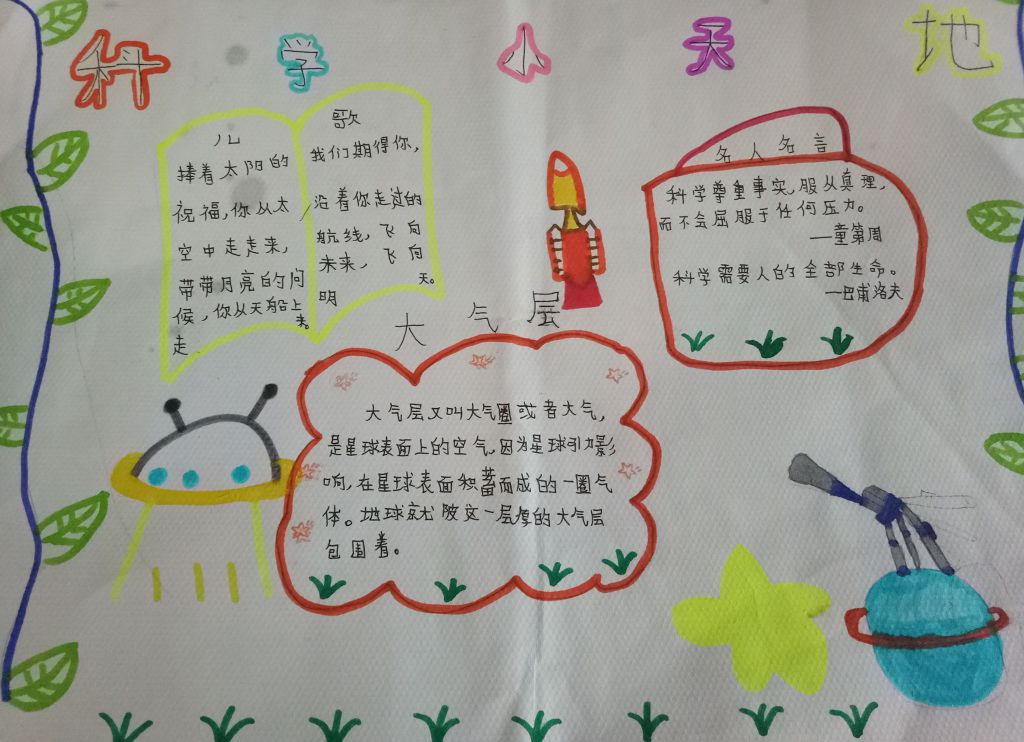 科学小天地
儿歌
捧着太阳的
祝福,你从太
空中走走来,
带带月亮的问
候,你从天船上
走来。
我们期得你,
沿着你走过的
航线,飞向
未来,飞向
明天。
名人名言
科学尊重事实,服从真理,
而不会屈服于任何压力。
—童第周
科学需要人的全部生命。
—巴甫洛夫
大气层
大气层又叫大气圈或者大气,
是星球表面上的空气,因为星球引力影
响,在星球表面积蓄而成的一圈气
体。地球就被这一层厚的大气层
包围着。